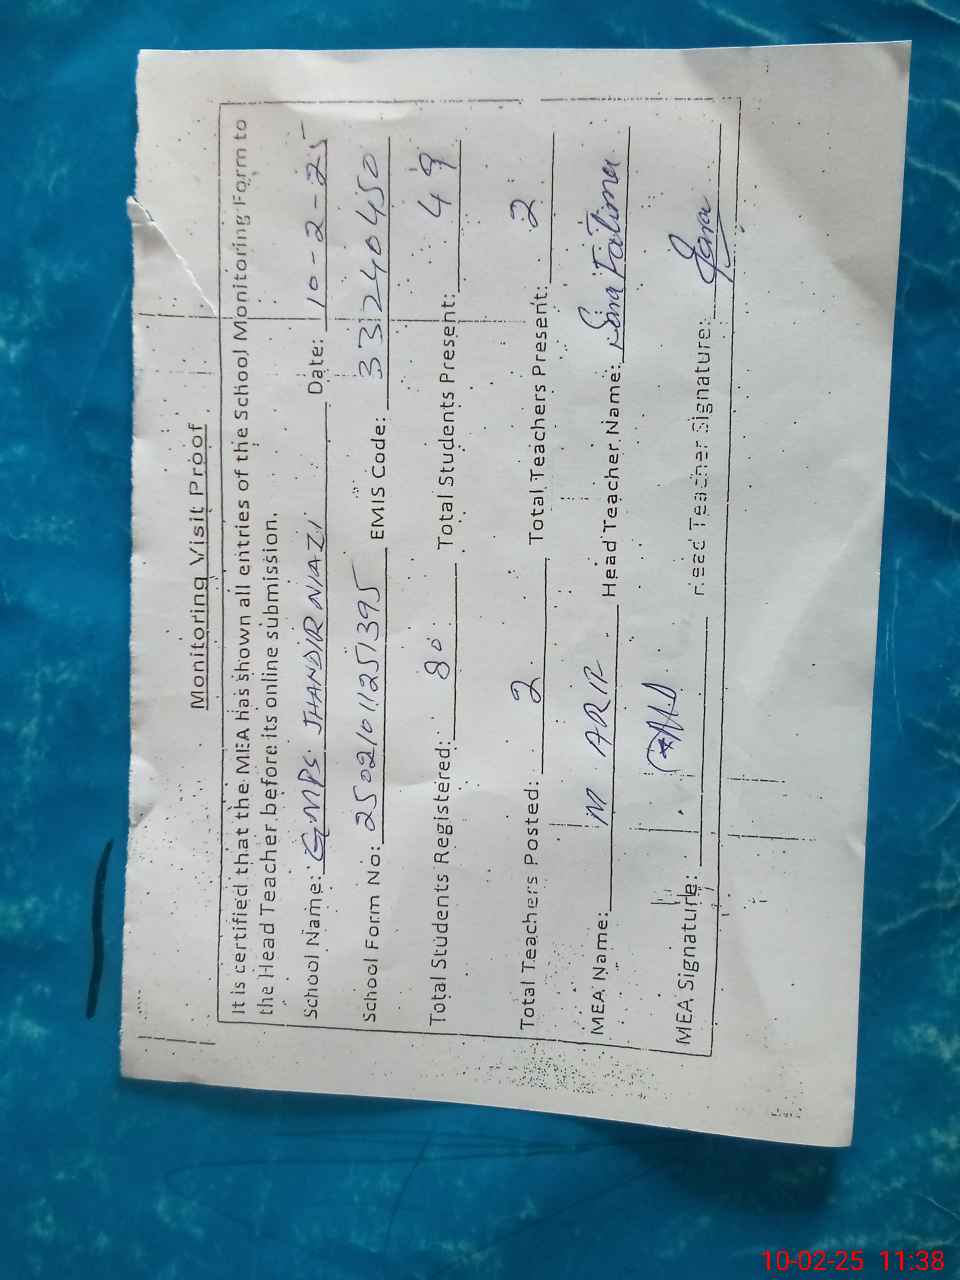 Monitoring Visit Proof
It is certified that the MEA has shown all entries of the School Monitoring Form to
the Head Teacher before its online submission.
School Name: GMPS JHANDIR NIAZI Date: 10-2-25
School Form No: 25021011251395 EMIS Code: 33240450
Total Students Registered: 80 Total Students Present: 49
Total Teachers Posted: 2 Total Teachers Present: 2
MEA Name: M ARIF Head Teacher Name: Sara Fatima
MEA Signature: Head Teacher Signature: Sara
10-02-25 11:38